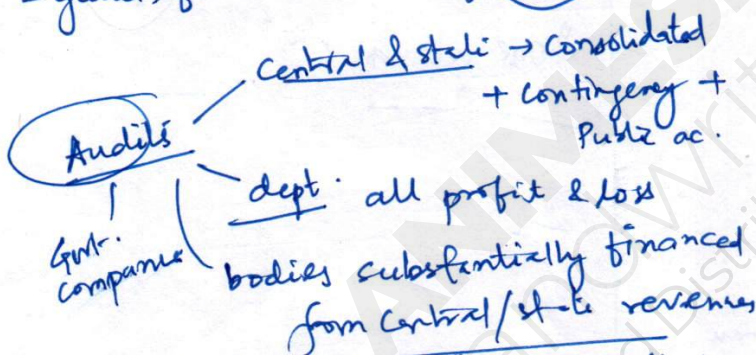 Central & state → Consolidated
+ Contingency +
Public ac.
Audits
dept. all profit & loss
Govt.
companies
bodies substantially financed
from Central/state revenues